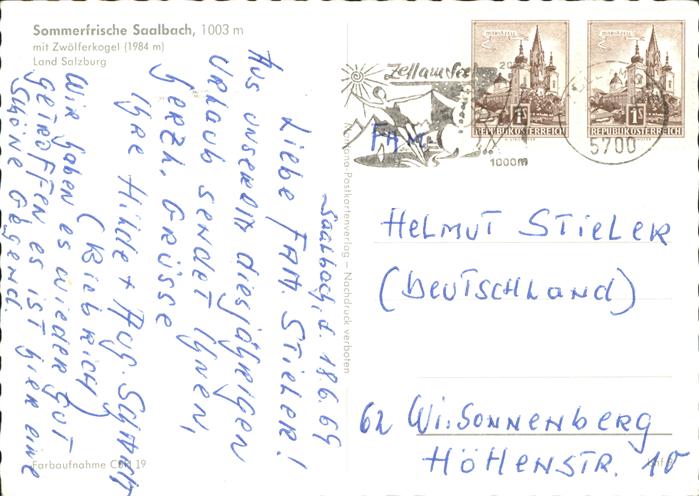 Sommerfrische Saalbach, 1003 m
mit Zwölferkogel (1984 m)
Land Salzburg
Saalbach, d. 18.6.69
Liebe Fam. Stieler!
Aus unserem diesjährigen
Urlaub sendet Ihnen,
herzl. Grüsse
Ihre Hilde + Aug. Schmidt
(Biebrich)
Wir haben es wieder gut
getroffen, es ist hier eine
schöne Gegend.
Farbaufnahme
19
-Postkartenverlag – Nachdruck verboten
Zell am See
1000m
5700
MARIAZELL
1S
REPUBLIK ÖSTERREICH
MARIAZELL
1S
REPUBLIK ÖSTERREICH
FAM.
HELMUT STIELER
(DEUTSCHLAND)
62 Wi:SONNENBERG
HÖHENSTR. 10